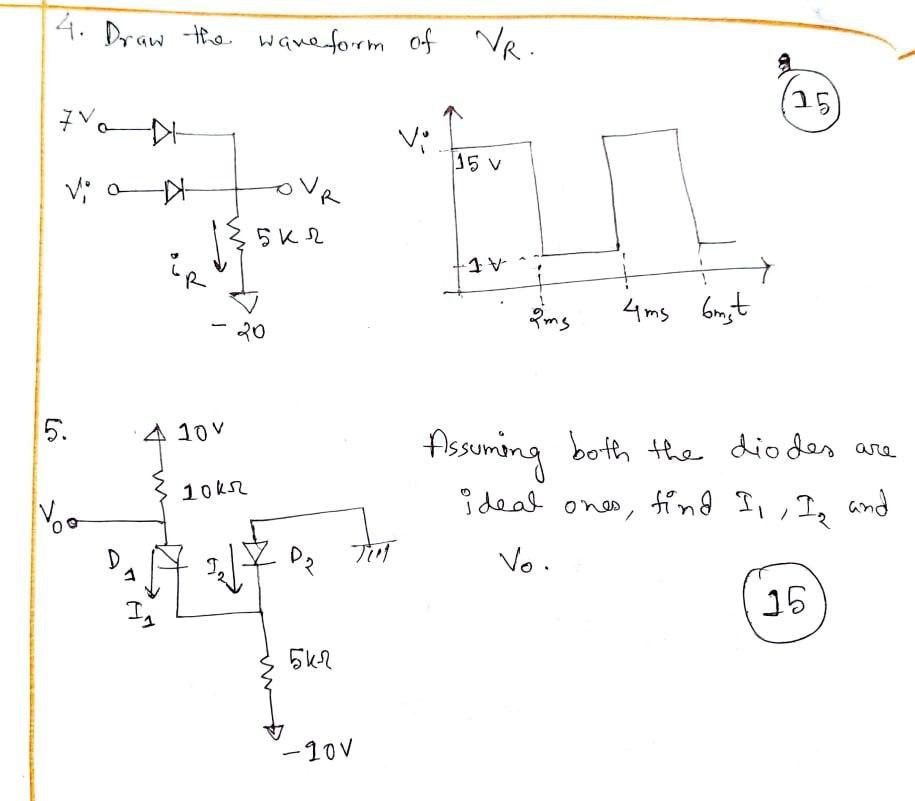 4. Draw the waveform of V_R.
15
7V
V_i
V_R
5KΩ
i_R
-20
V_i
15 v
1 v
2ms
4ms
6ms
t
5.
10V
10KΩ
V_o
D_1
I_1
I_2
D_2
5KΩ
-10V
Assuming both the diodes are
ideal ones, find I_1, I_2 and
V_o.
15